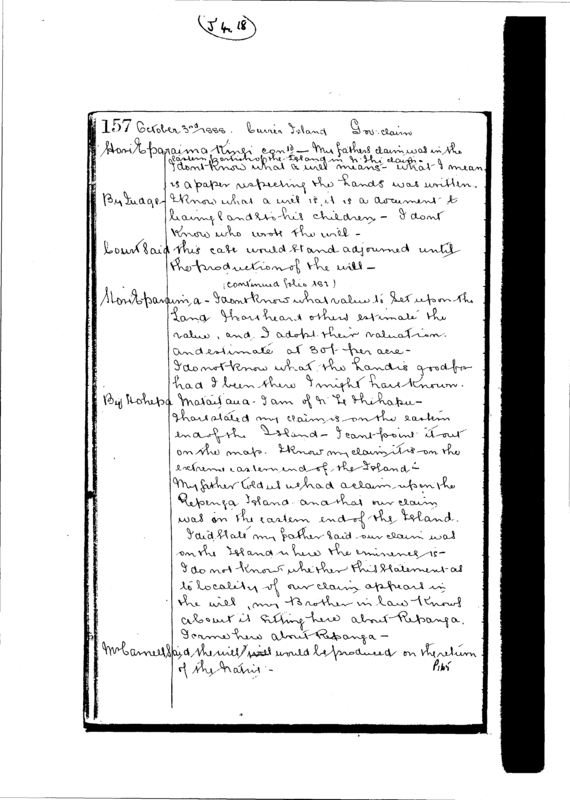 J 4 18
157 October 3rd 1888. Cuvier Island Gov. claim
Hori Eparaima Kingi contd — My fathers claim was in the
eastern portion of the Island in N. Ihi claim.
I dont know what a will means - what I mean
is a paper respecting the Lands was written.
By Judge - I know what a will is, it is a document
leaving Lands to his children - I dont
know who wrote the will -
Court Said this case would stand adjourned until
the production of the will -
(continued folio 181)
Hori Eparaima - I dont know what value to set upon the
Land I have heard others estimate the
value, and I adopt their valuation.
and estimate at 30/- per acre -
I do not know what the Land is good for
had I been there I might have known.
By Hohepa Mataitaua. I am of N. Te Ihikapu -
I have stated my claim is on the eastern
end of the Island - I cant point it out
on the map. I know my claim it is on the
extreme eastern end of the Island -
My father told us we had a claim upon the
Repanga Island and that our claim
was on the eastern end of the Island.
I did state my father said our claim was
on the Island where the eminence is -
I do not know whether this statement as
to locality of our claim appears in
the will, my Brother in law knows
about it sitting here about Repanga.
I came here about Repanga -
Mr Cannell Said the will would be produced on the return
of the Native -